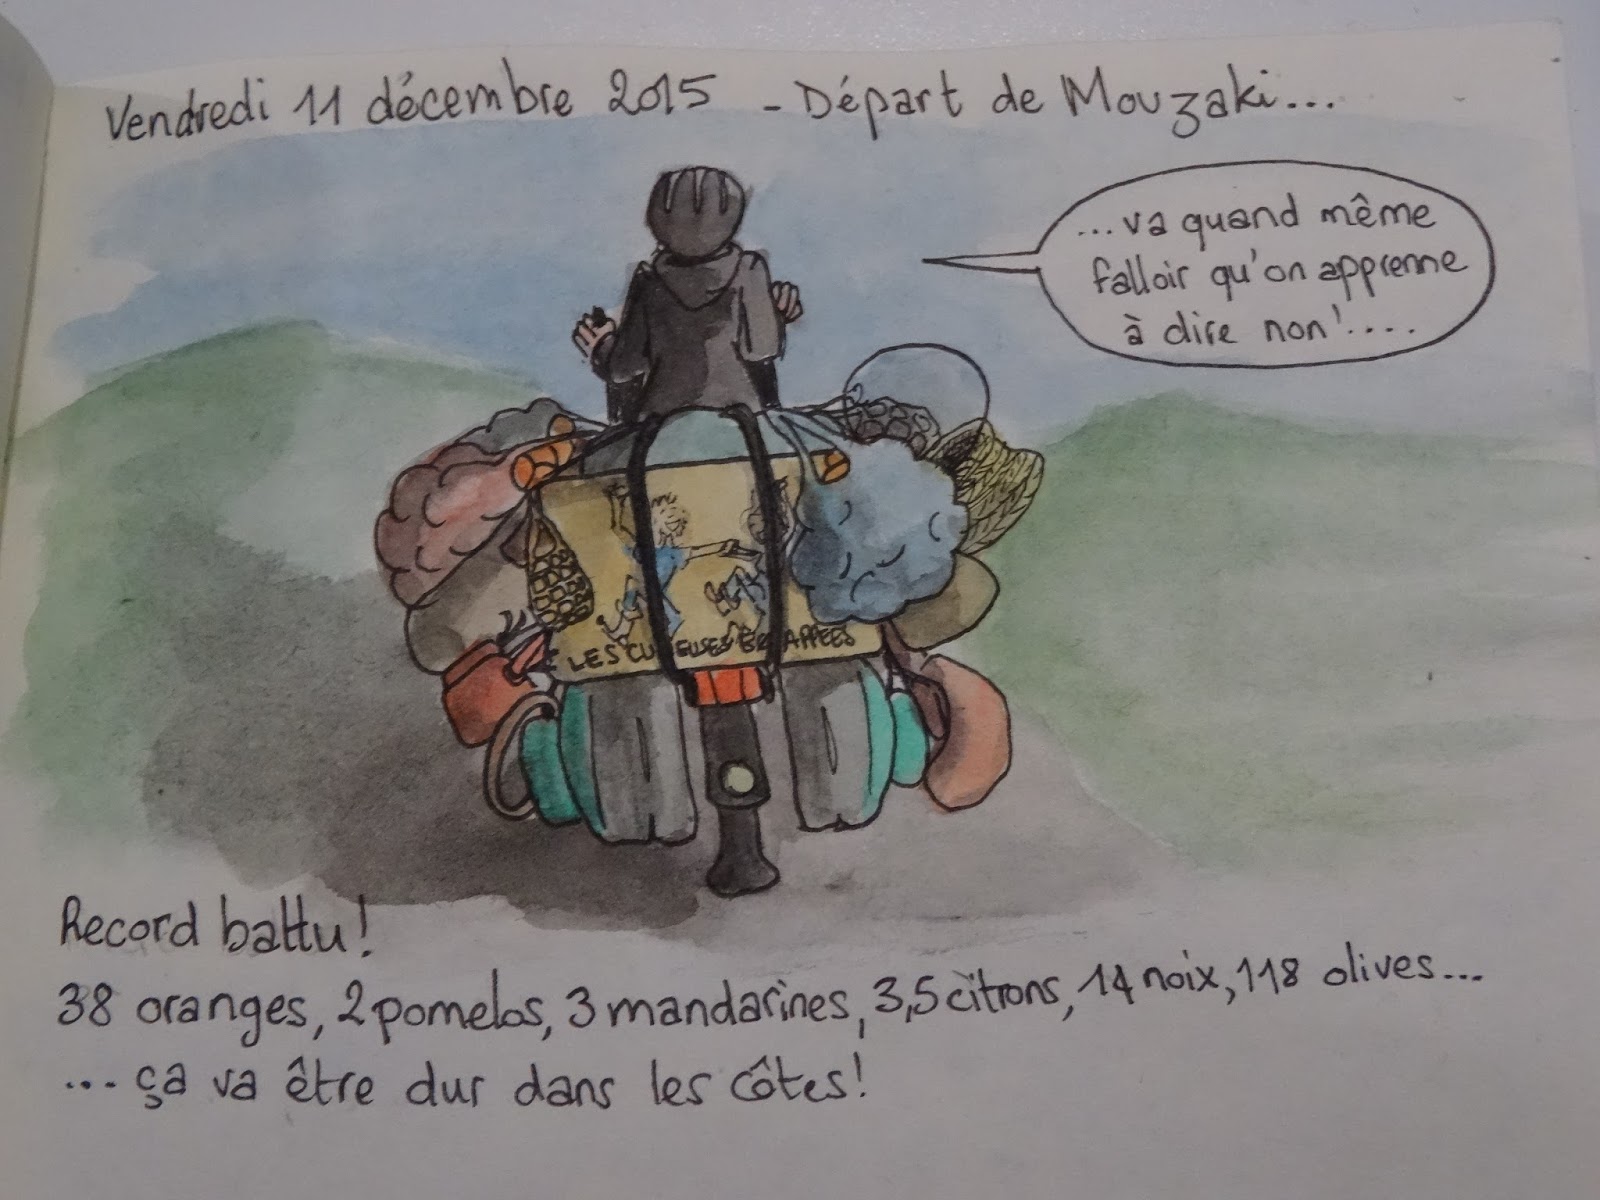 Vendredi 11 décembre 2015 - Départ de Mouzaki...
...va quand même
falloir qu'on apprenne
à dire non!....
LES CURIEUSES ECHAPPÉES
Record battu!
38 oranges, 2 pomelos, 3 mandarines, 3,5 citrons, 14 noix, 118 olives...
... ça va être dur dans les côtes!